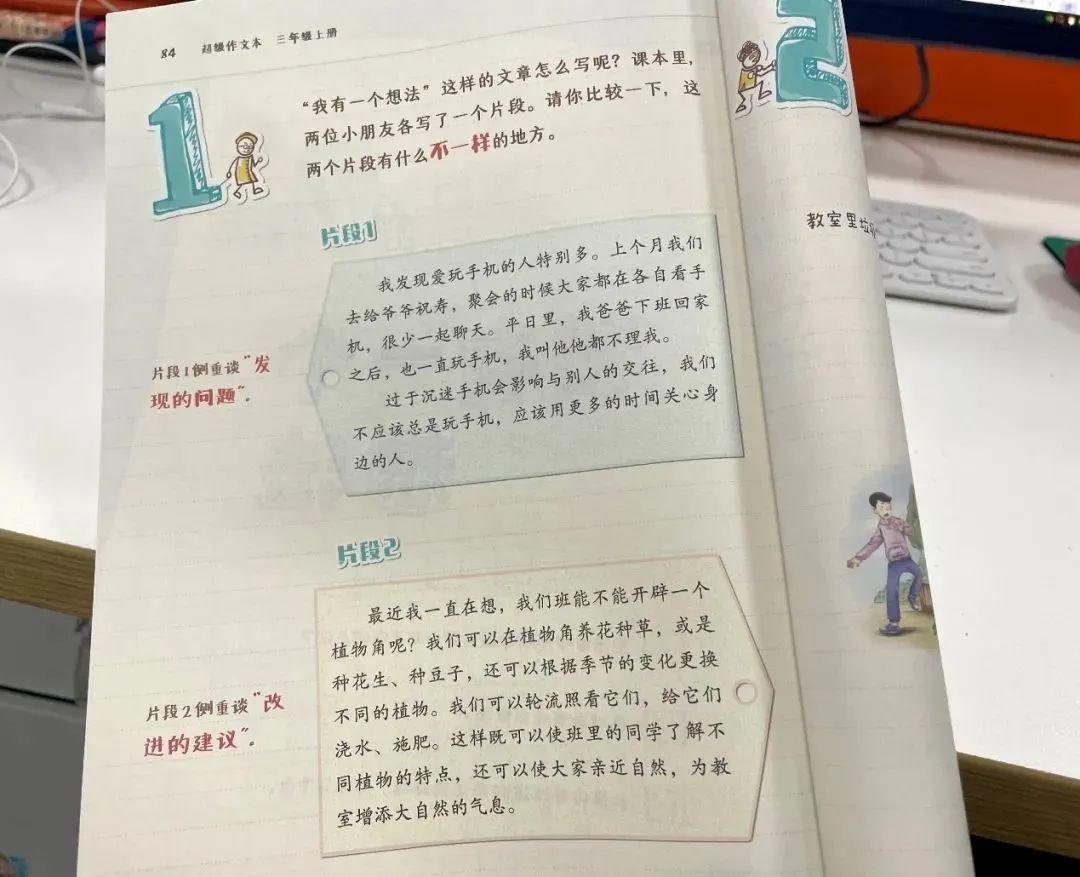 84 超级作文本 三年级上册
1
“我有一个想法”这样的文章怎么写呢？课本里，
两位小朋友各写了一个片段。请你比较一下，这
两个片段有什么不一样的地方。
片段1
我发现爱玩手机的人特别多。上个月我们
去给爷爷祝寿，聚会的时候大家都在各自看手
机，很少一起聊天。平日里，我爸爸下班回家
之后，也一直玩手机，我叫他他都不理我。
过于沉迷手机会影响与别人的交往，我们
不应该总是玩手机，应该用更多的时间关心身
边的人。
片段1侧重谈“发
现的问题”。
片段2
最近我一直在想，我们班能不能开辟一个
植物角呢？我们可以在植物角养花种草，或是
种花生、种豆子，还可以根据季节的变化更换
不同的植物。我们可以轮流照看它们，给它们
浇水、施肥。这样既可以使班里的同学了解不
同植物的特点，还可以使大家亲近自然，为教
室增添大自然的气息。
片段2侧重谈“改
进的建议”。
2
教室里垃